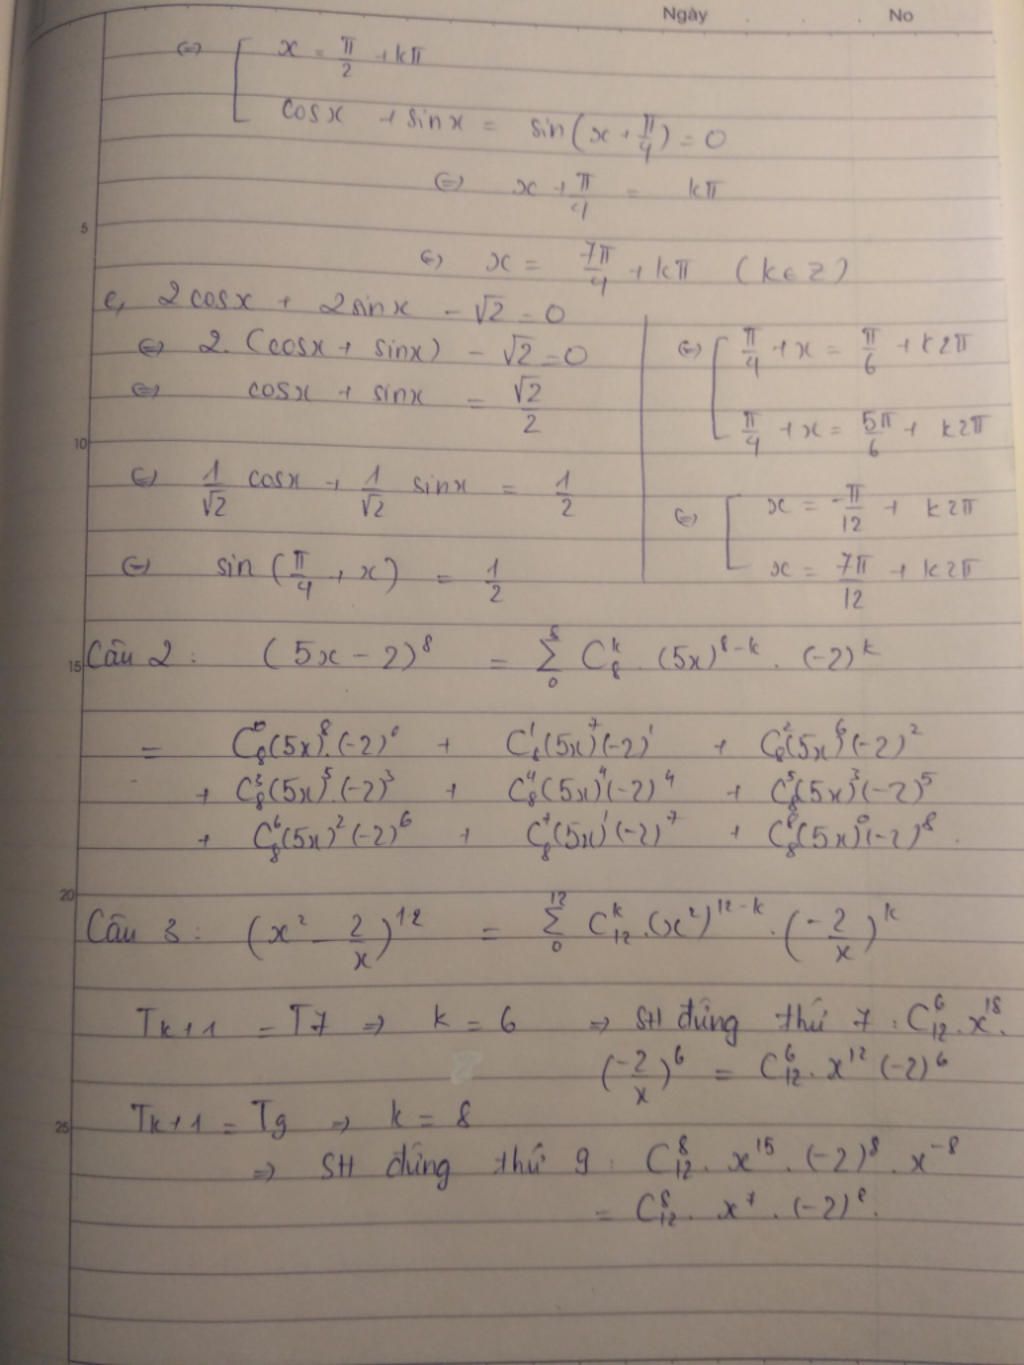 Ngày . . . No
⇔ [ x = π/2 + kπ
cosx + sinx = sin(x + π/4) = 0
⇔ x + π/4 = kπ
5
⇔ x = 7π/4 + kπ (k∈Z)
c, 2cosx + 2sinx - √2 = 0
⇔ 2.(cosx + sinx) - √2 = 0
⇔ cosx + sinx = √2/2
10
⇔ 1/√2 cosx + 1/√2 sinx = 1/2
⇔ sin(π/4 + x) = 1/2
⇔ [ π/4 + x = π/6 + k2π
π/4 + x = 5π/6 + k2π
⇔ [ x = -π/12 + k2π
x = 7π/12 + k2π
15 Câu 2 : (5x - 2)⁸ = ∑₀⁸ C₈ᵏ . (5x)⁸⁻ᵏ . (-2)ᵏ
= C₈⁰(5x)⁸.(-2)⁰ + C₈¹(5x)⁷(-2)¹ + C₈²(5x)⁶(-2)²
+ C₈³(5x)⁵.(-2)³ + C₈⁴(5x)⁴(-2)⁴ + C₈⁵(5x)³(-2)⁵
+ C₈⁶(5x)²(-2)⁶ + C₈⁷(5x)¹(-2)⁷ + C₈⁸(5x)⁰(-2)⁸ .
20
Câu 3 : (x² - 2/x)¹² = ∑₀¹² C₁₂ᵏ.(x²)¹²⁻ᵏ . (-2/x)ᵏ
Tk+1 = T7 ⇒ k = 6 ⇒ SH đứng thứ 7 : C₁₂⁶ . x¹⁸.
(-2/x)⁶ = C₁₂⁶ . x¹² (-2)⁶
25 Tk+1 = T9 ⇒ k = 8
⇒ SH đứng thứ 9 : C₁₂⁸ . x¹⁵ . (-2)⁸ . x⁻⁸
= C₁₂⁸ . x⁷ . (-2)⁸.